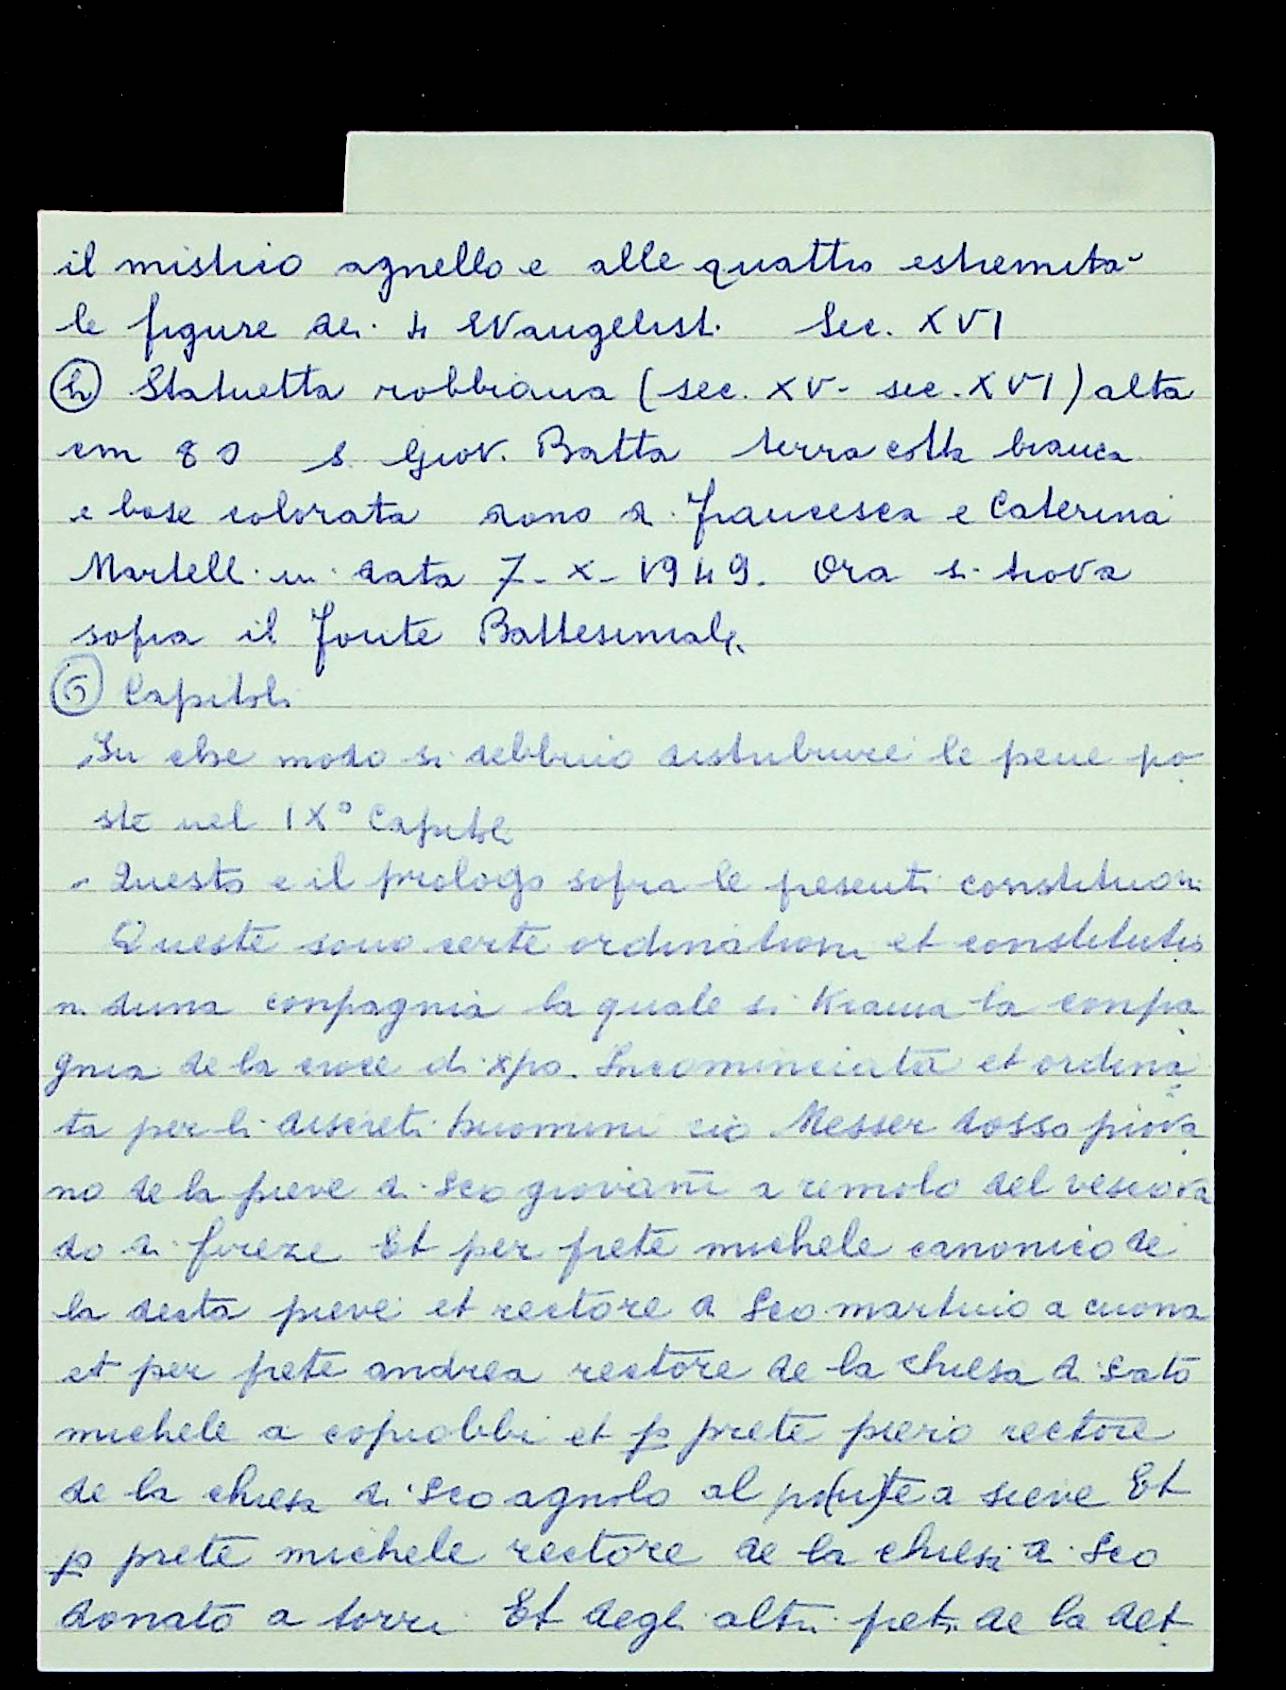 il mistico agnello e alle quattro estremità
le figure dei 4 Evangelisti. Sec. XVI
h Statuetta robbiana (sec. XV - sec. XVI) alta
cm 80 S. Giov. Batta terracotta bianca
e base colorata dono di Francesca e Caterina
Martelli in data 7-X-1949. Ora si trova
sopra il Fonte Battesimale.
G Capitoli
In che modo si debbino distribuire le pene po
ste nel IX° Capitolo
- Questo e il prologo sopra le presenti constitutioni
Queste sono certe ordinationi et constitutio
ni duna conpagnia la quale si kiama la conpa
gnia de la croce di xpo. Incominciata et ordina
ta per li discreti huomini cio Messer dosso piova
no de la pieve di Sco giovanni a remolo del vescova
do di fireze Et per prete michele canonico de
la decta pieve et rectore di Sco martino a cuona
et per prete andrea rectore de la chiesa di Sato
michele a copiobbi et p prete piero rectore
de la chiesa di Sco agnolo al po(n)te a sieve Et
p prete michele rectore de la chiesa di Sco
donato a torri Et degli altri preti de la det